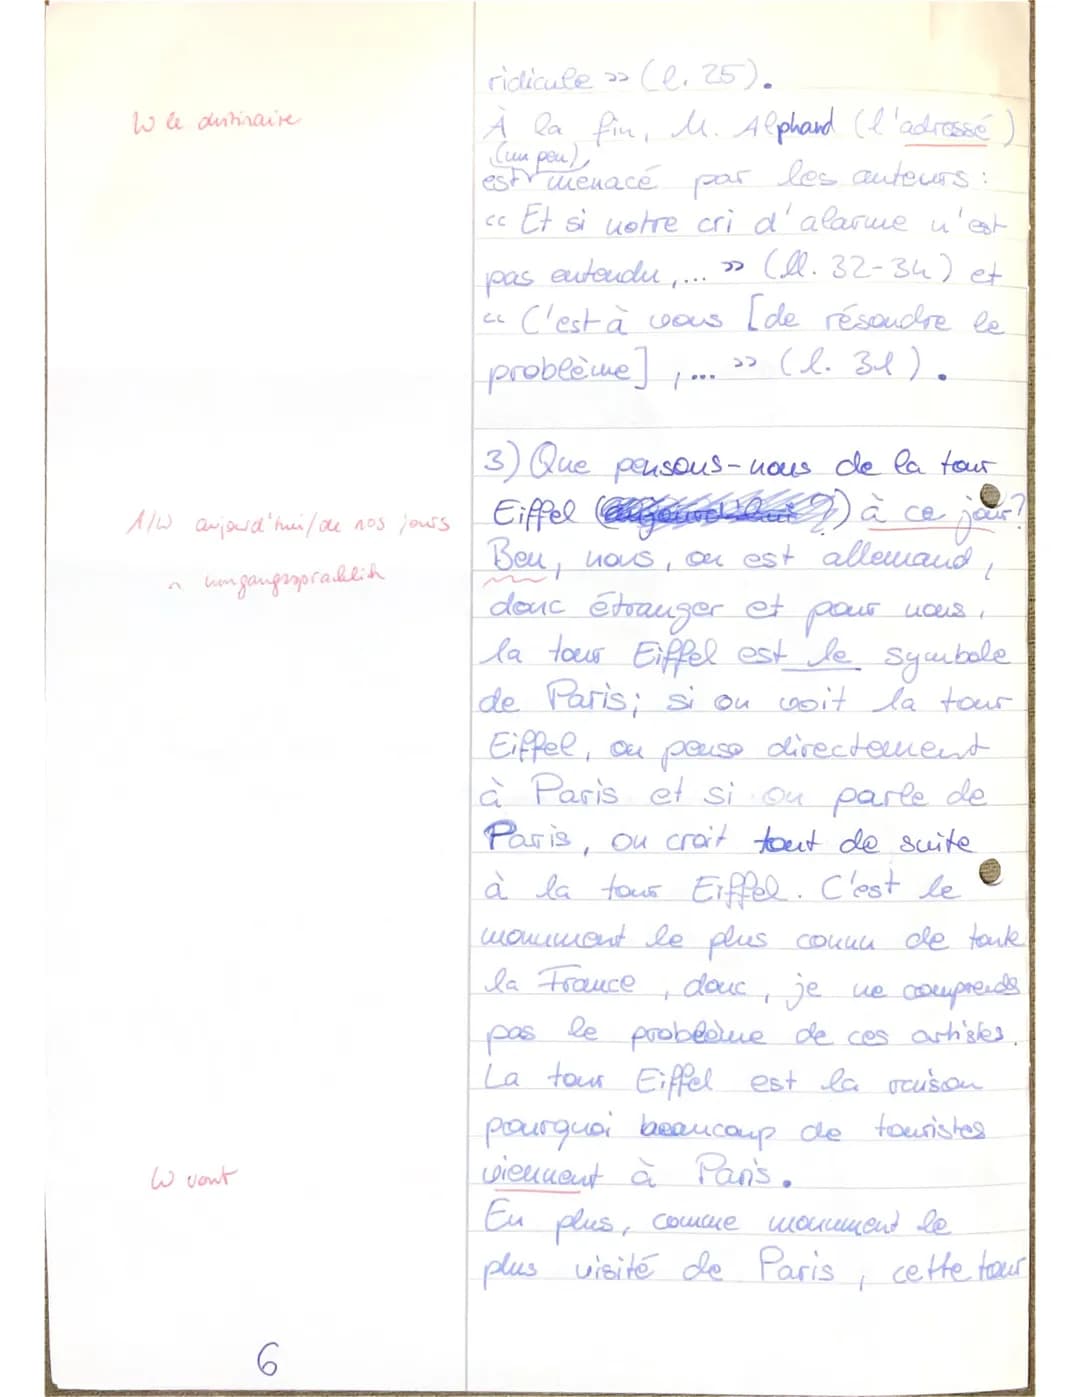 ridicule » (l. 25).
W le destinaire
À la fin, M. Alphand (l'adressé)
(un peu)
est menacé par les auteurs :
« Et si notre cri d'alarme n'est
pas entendu,... » (ll. 32-34) et
« C'est à vous [de résoudre le
problème] ,... » (l. 31).
3) Que pensons-nous de la tour
A/W aujourd'hui/de nos jours
Eiffel (aujourd'hui ?) à ce jour?
~ umgangssprachlich
Ben, nous, on est allemand,
donc étranger et pour nous,
la tour Eiffel est le symbole
de Paris; si on voit la tour
Eiffel, on pense directement
à Paris et si on parle de
Paris, on croit tout de suite
à la tour Eiffel. C'est le
monument le plus connu de toute
la France, donc, je ne comprends
pas le problème de ces artistes.
La tour Eiffel est la raison
pourquoi beaucoup de touristes
W vont
viennent à Paris.
En plus, comme monument le
plus visité de Paris, cette tour
6